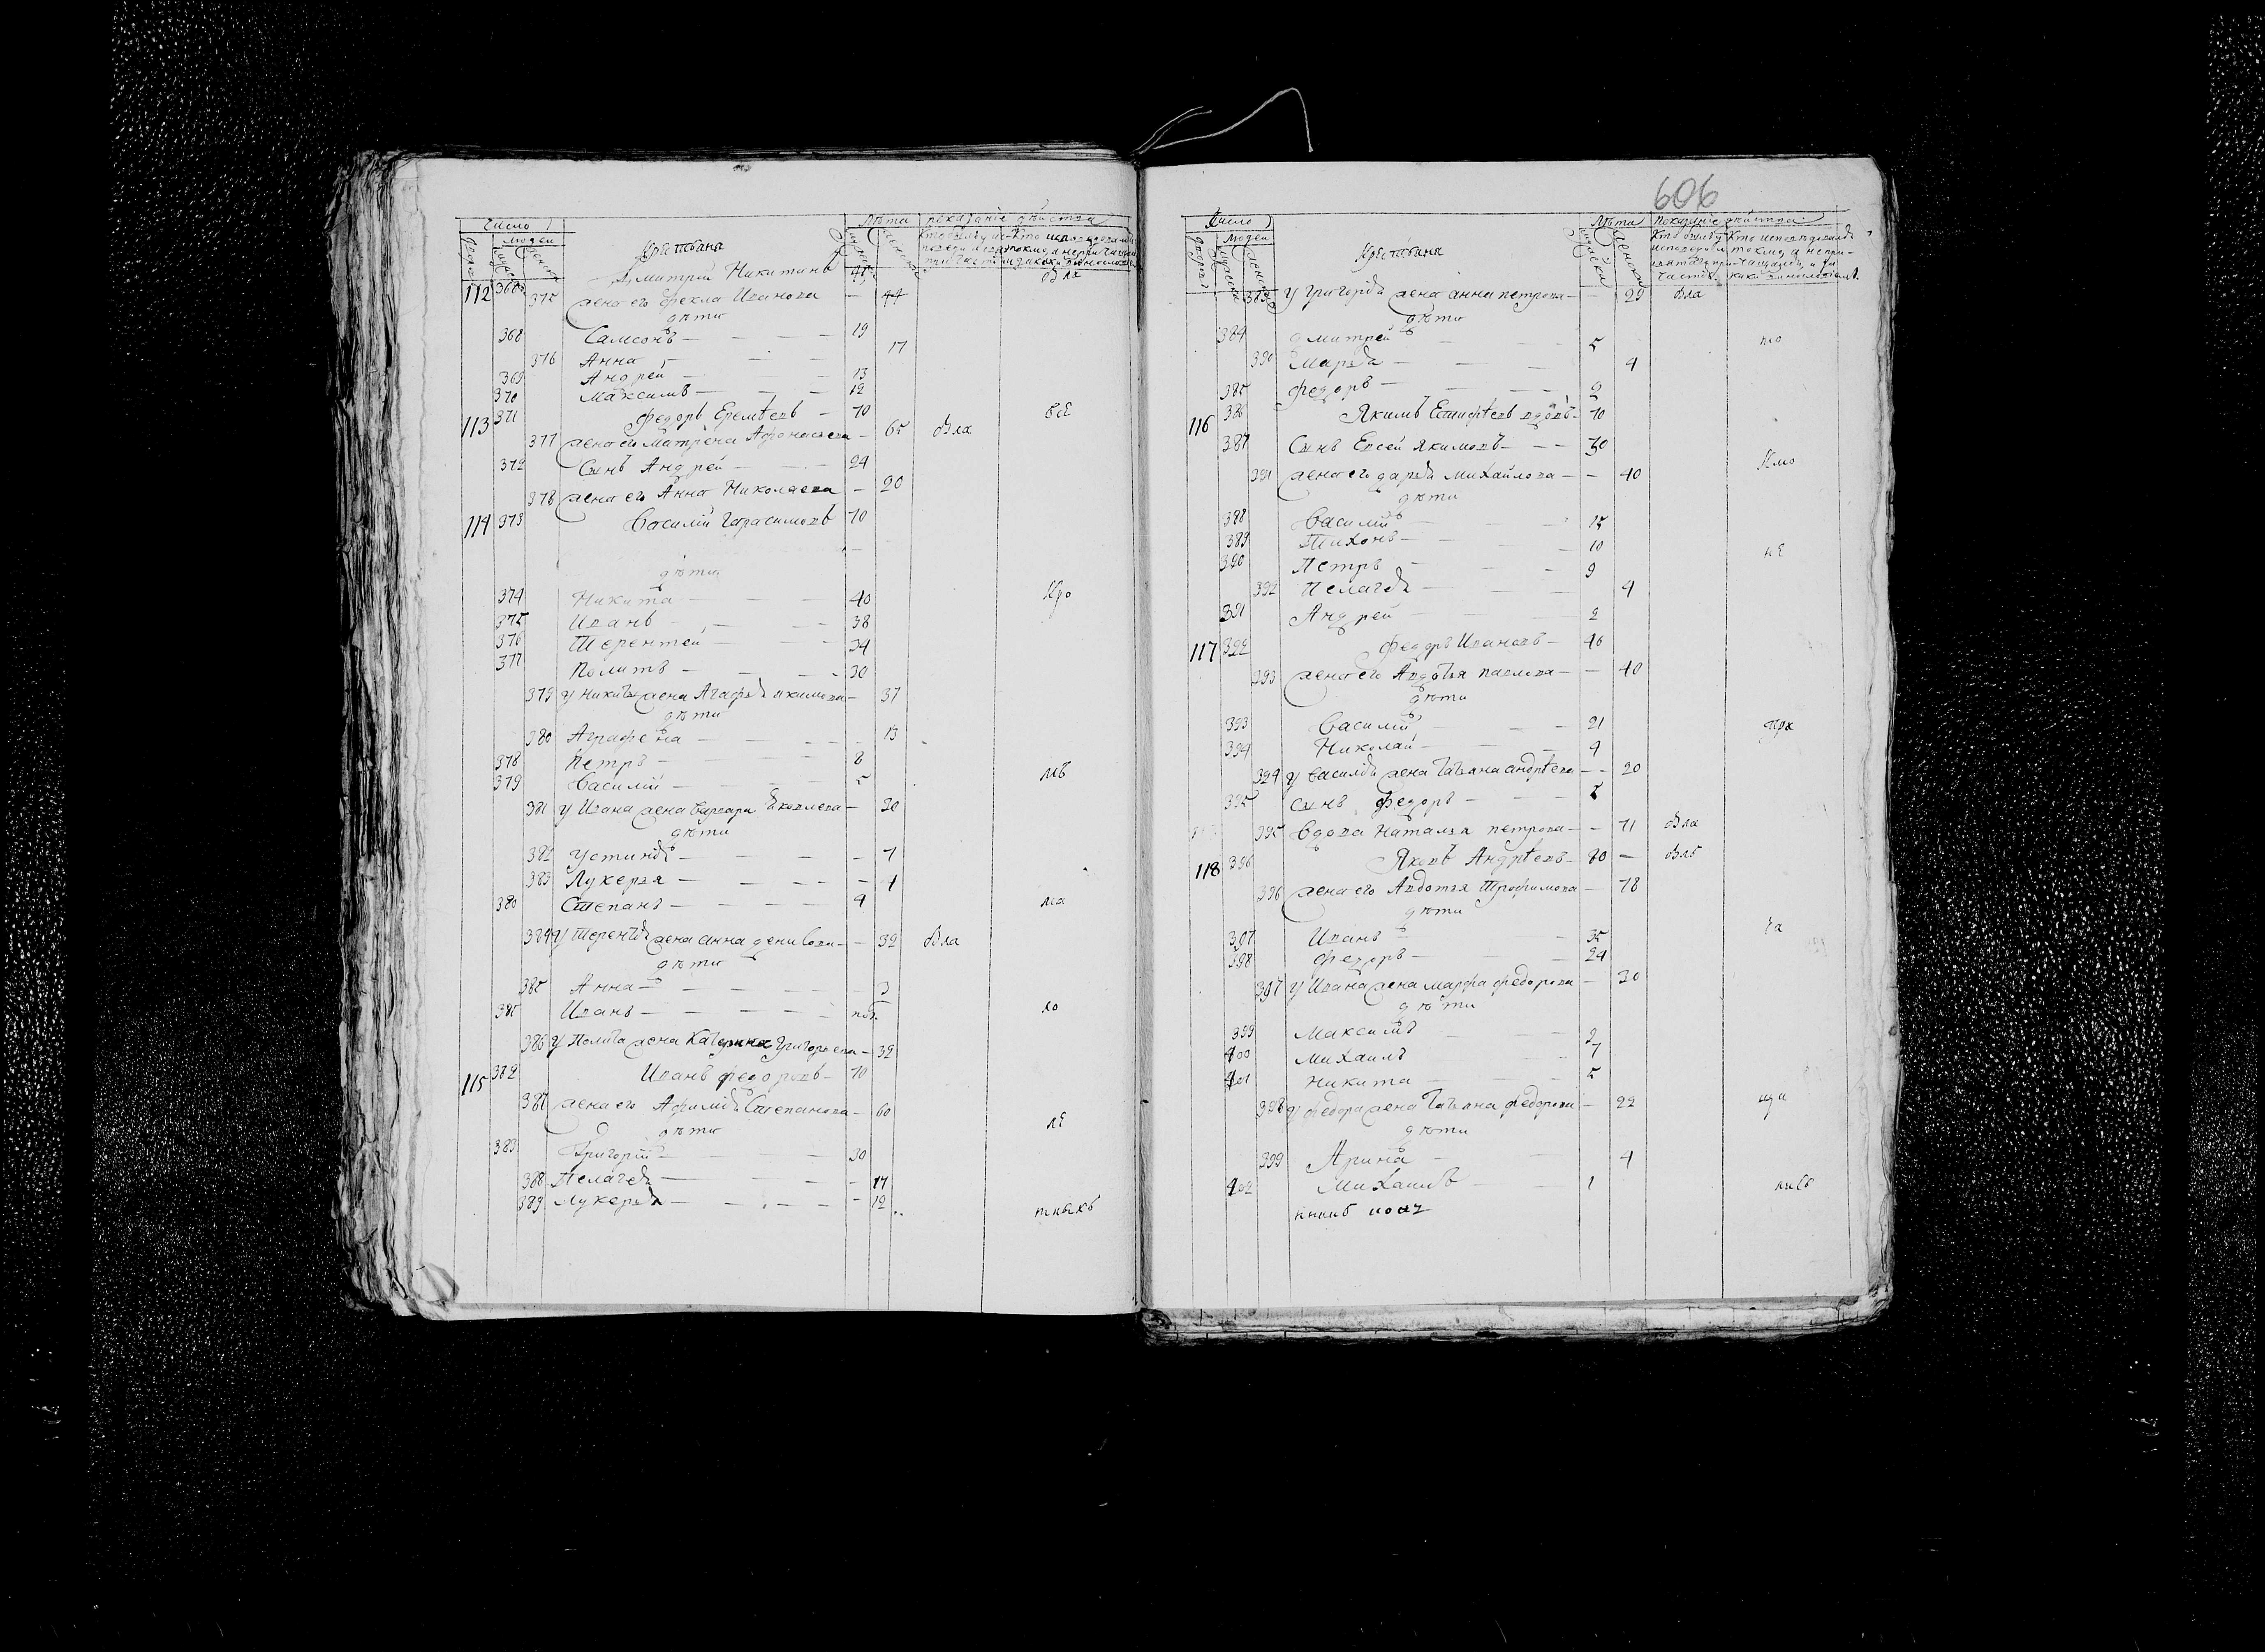 Число
Лѣта показание дѣйства
людей
Крестьяня
Дмитрий Никитинъ
112 375 жена его Фекла Иванова — 44
дѣти
368 Самсонъ — 19
376 Анна — 17
369 Андрей — 13
370 Максимъ — 12
113 371 Федоръ Еремѣевъ — 70
377 жена его Матрена Афонасьева — 65 была
372 Сынъ Андрей — 24
378 жена его Анна Николаева — 20
114 373 Василий Гарасимовъ 70
дѣти
374 Никита — 40
375 Иванъ — 38
376 Терентей — 34
377 Политъ — 30
379 у Никиты жена Агафья Якимова — 37
дѣти
380 Аграфена — 13
378 Петръ — 8
379 Василий — 5
381 у Ивана жена Варвара Яковлева — 30
дѣти
382 Устинья — 7
383 Лукерья — 4
380 Степанъ — 4
384 у Терентья жена Анна Денисова — 32 была
дѣти
385 Анна — 3
Иванъ —
386 у Полита жена Катерина Григорьева — 32
115 382 Иванъ Федоровъ — 70
387 жена его Афимья Степанова — 60
дѣти
383 Григорий — 30
388 Пелагея — 17
389 Лукерья — 12
606
Число
Лѣта Показание дѣйства
людей
Крестьяня
у Григорья жена Анна Петрова — 29 была
дѣти
384 Дмитрей — 5
390 Марья — 4
385 Федоръ — 2
116 386 Якимъ Епифѣевъ вдовъ — 70
387 Сынъ Евсей Якимовъ — 30
391 жена его Дарья Михайлова — 40
дѣти
388 Василий — 15
389 Тихонъ — 10
390 Петръ — 9
392 Пелагея — 4
391 Андрей — 2
117 392 Федоръ Ивановъ — 40
393 жена его Авдотья Павлова — 40
дѣти
393 Василий — 21
394 Николай — 4
394 у Василья жена Татьяна Андрѣева — 20
395 сынъ Федоръ —
395 Вдова Наталья Петрова — 71 была
118 396 Яковъ Андрѣевъ — 80 — былъ
396 жена его Авдотья Трофимова — 78
дѣти
397 Иванъ — 35
398 Федоръ — 24
397 у Ивана жена Марфа Федорова — 30
дѣти
399 Максимъ — 9
400 Михаилъ — 7
401 Никита — 5
398 у Федора жена Татьяна Федорова — 22
дѣти
399 Арина — 4
402 Михаилъ — 1